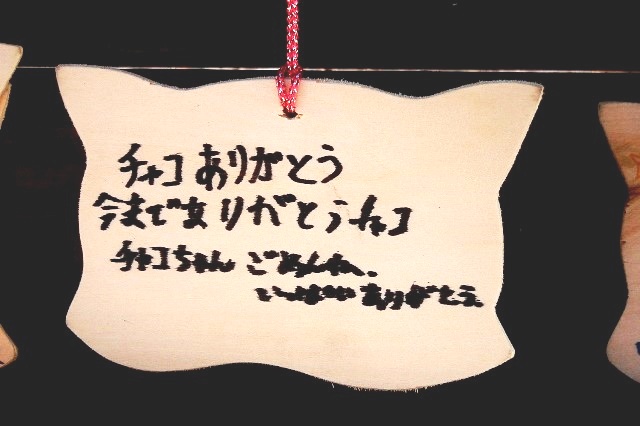 チャコ ありがとう
今までありがとうチャコ
チャコちゃん ごめんね、
いっぱいありがとう。